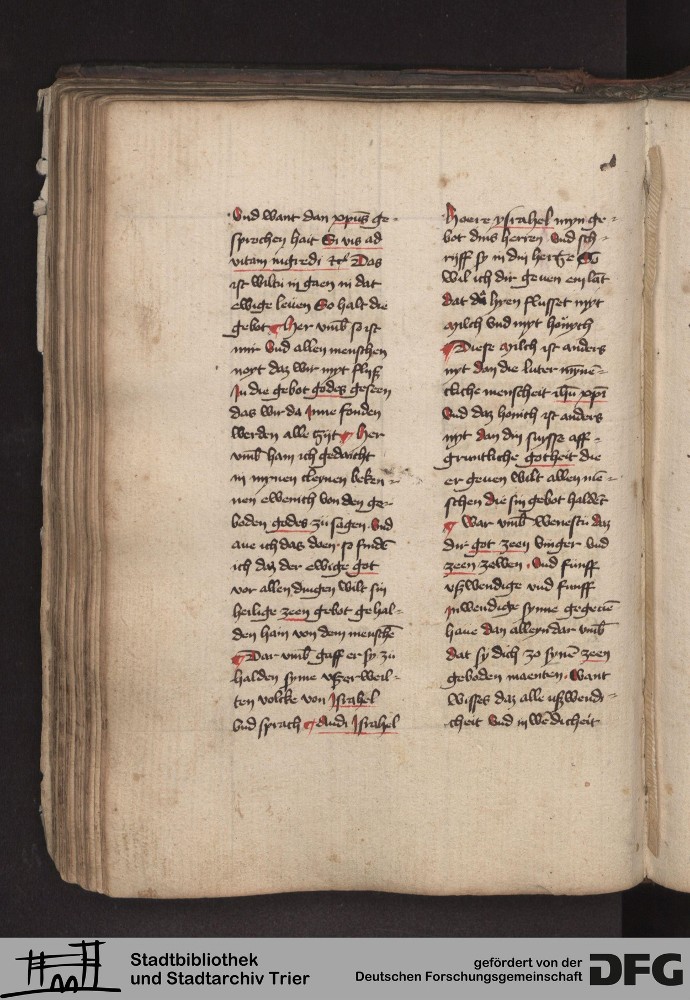 Vnd want dan xpūs ge-
sprochen hait Si vis ad
vitam ingredi etc Das
ist wiltu in gaen in dat
ewige leuen So halt die
gebot Her vmb so ist
mir Vnd allen menschen
noyt daz wir myt flijß
In die gebot godes geseen
das wir da Inne fonden
werden alle tzijt Her
vmb hain ich gedaicht
in mynen cleynen beken-
nen ewenich von den ge-
boden godes zu sagen Vnd
aue ich das doen so finden
ich daz der ewige got
vor allen dingen wilt sin
heilige zeen gebot gehal-
den hain von dem mensche
Dar vmb gaff er sy zu
halden syme vßerweil-
ten volcke von Israhel
vnd sprach Audi Israhel
Hoere ysrahel myn ge-
bot dins herren Vnd sch-
rijff sy in din hertze
wil ich dir geuen ein lāt
dat da hren flusset myt
milch vnd myt hönych
Diese milch ist anders
nyt dan die luter mÿne-
cliche menscheit ihū xpī
Vnd daz honich ist anders
nyt dan din suysse aff-
gruntliche gotheit die
er geuen wilt allen me-
schen die sin gebot haldēt
War vmb wenestu daz
dir got zeen vinger vnd
zeen zewen Vnd funff
vßwendige vnd funff
Inwendige synne gegeuē
haue dan alleyn dar vmb
dat sy dich zo synē zeen
geboden maenten Want
wisses daz alle vßwendi-
cheit Vnd inwēdicheit
Stadtbibliothek
und Stadtarchiv Trier
gefördert von der
Deutschen Forschungsgemeinschaft
DFG